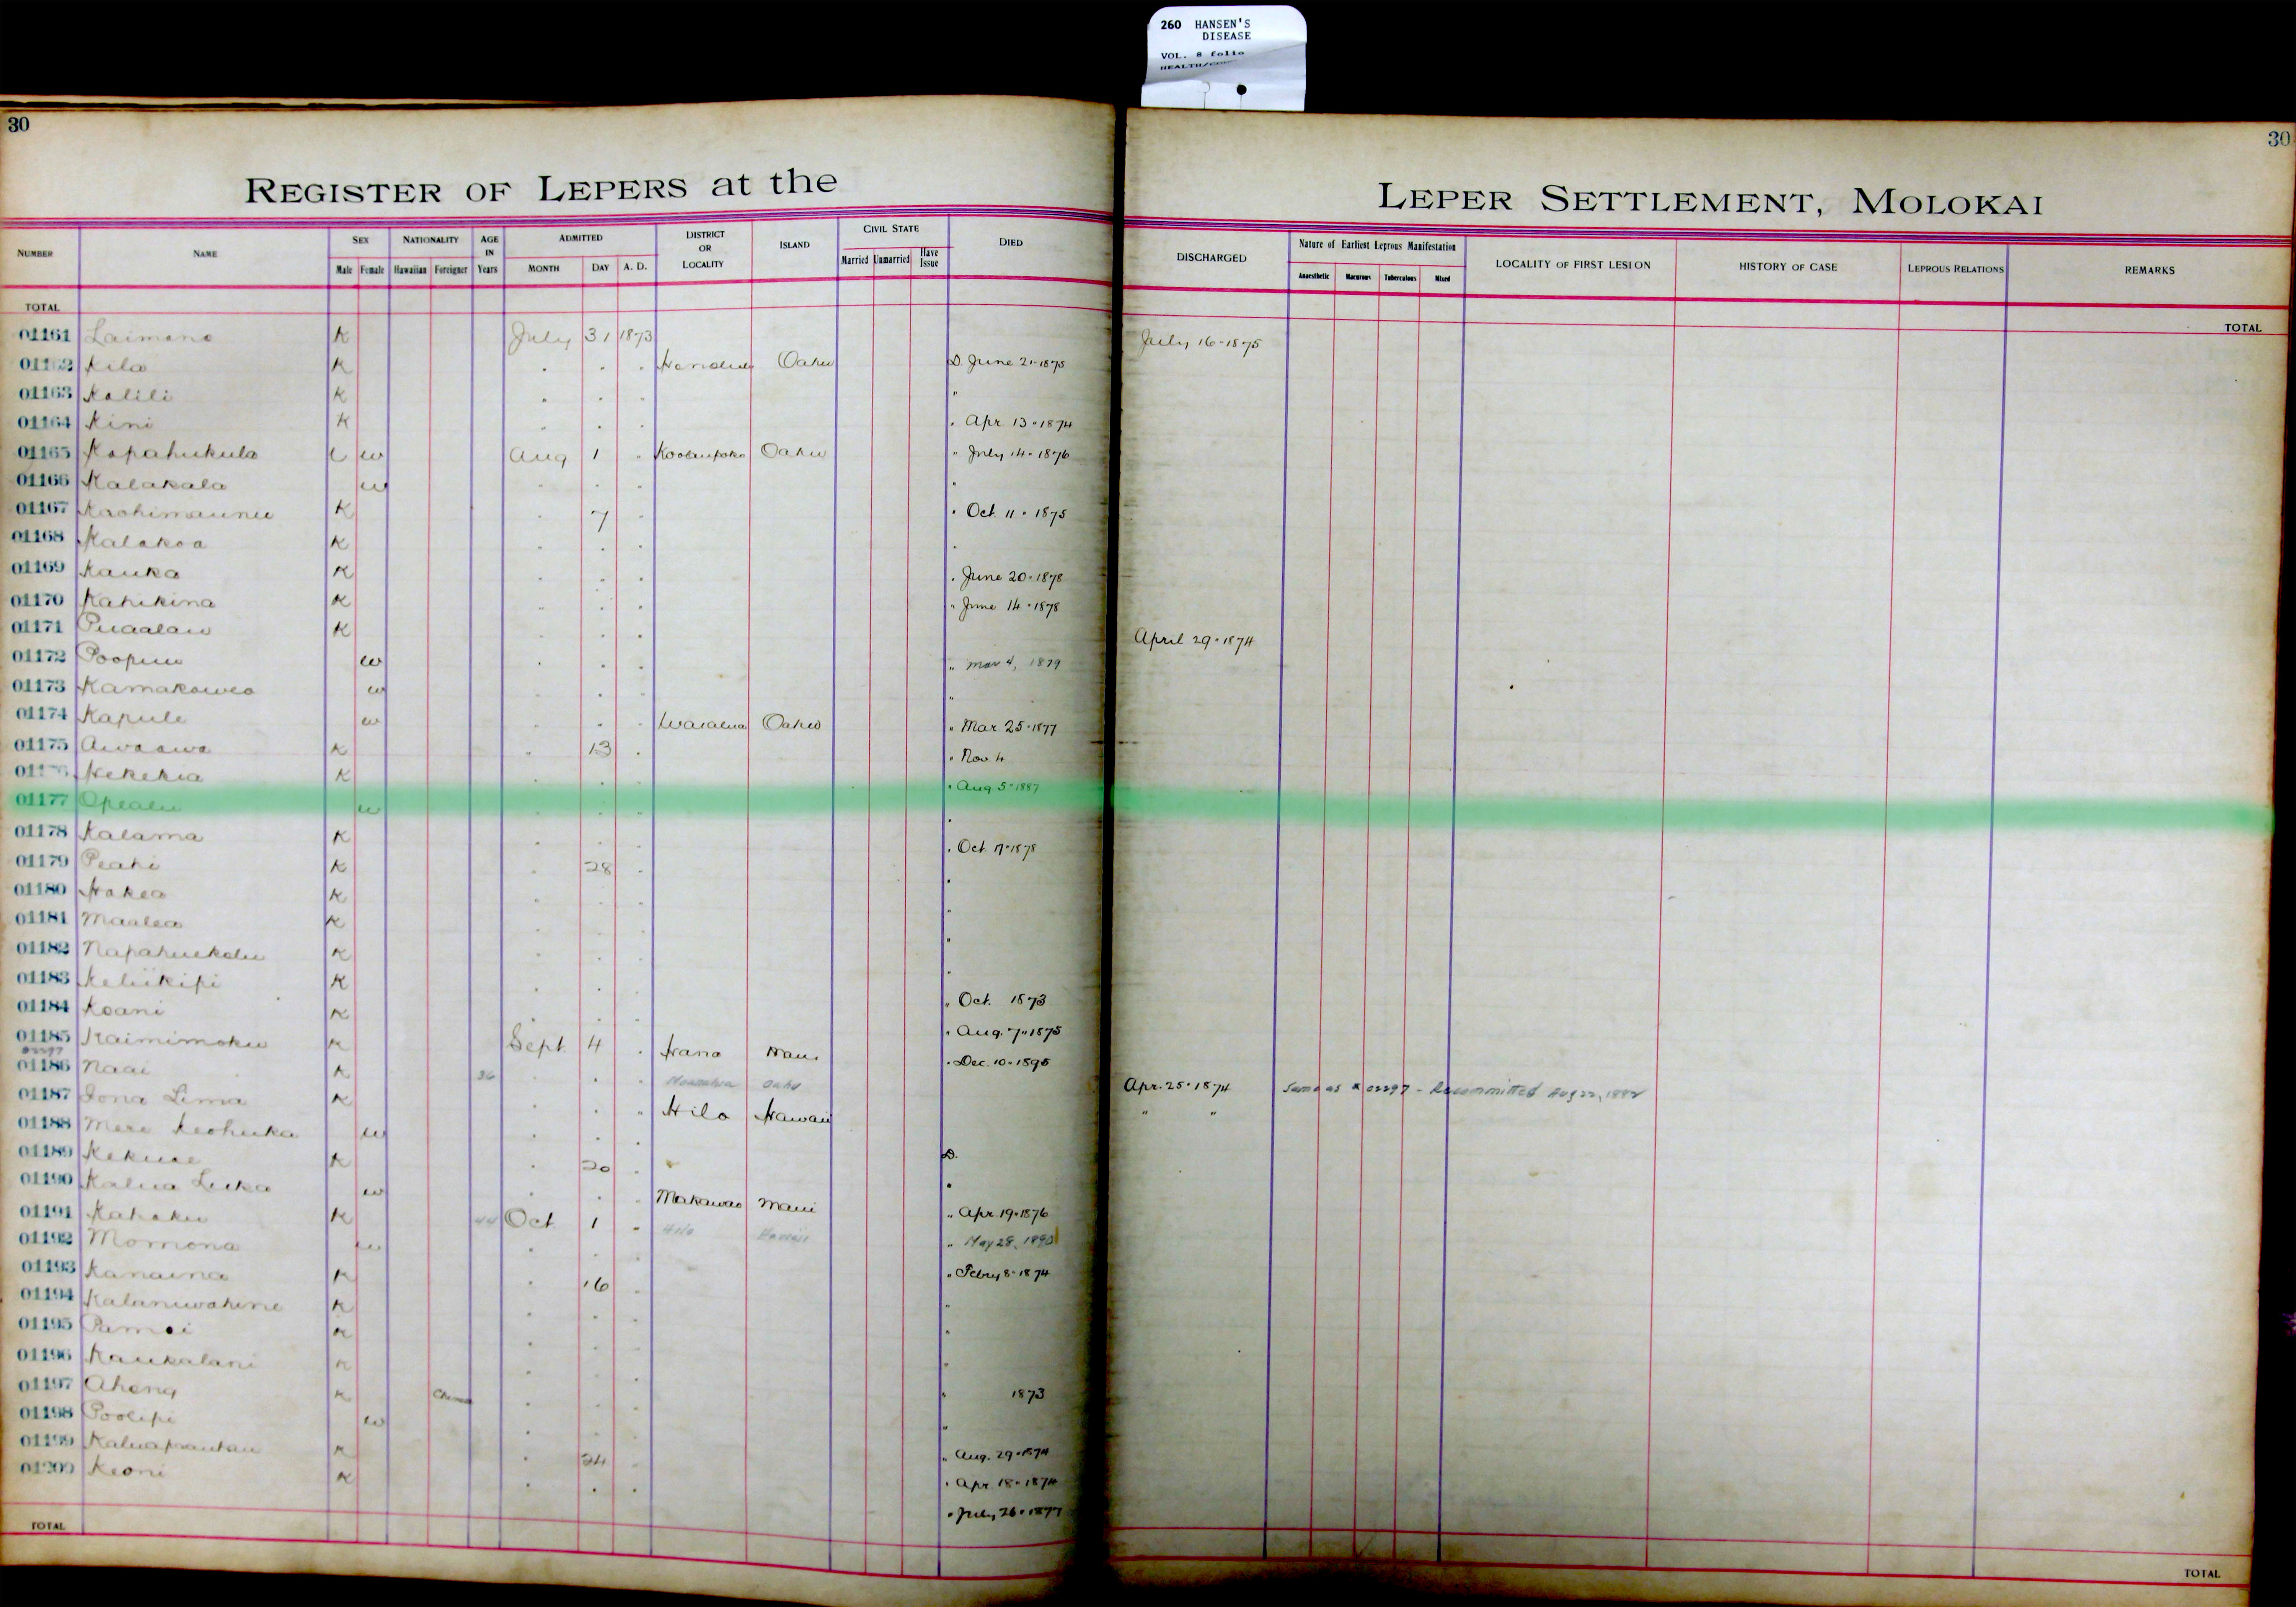 260 HANSEN'S
DISEASE
VOL. 8 folio
30
30
REGISTER OF LEPERS at the
LEPER SETTLEMENT, MOLOKAI
NUMBER NAME SEX NATIONALITY AGE IN Years ADMITTED DISTRICT OR LOCALITY ISLAND CIVIL STATE DIED
Male Female Hawaiian Foreigner MONTH DAY A. D. Married Unmarried Have Issue
DISCHARGED Nature of Earliest Leprous Manifestation LOCALITY OF FIRST LESION HISTORY OF CASE LEPROUS RELATIONS REMARKS
Anaesthetic Macurous Tuberculous Mixed
TOTAL
TOTAL
01161 Laimana K July 31 1873 July 16-1875
01162 Kila K Honolulu Oahu D. June 21-1875
01163 Kalili K "
01164 Kini K " Apr. 13-1874
01165 Kapahukula w Aug 1 Koolaupoko Oahu " July 14-1876
01166 Kalakala w "
01167 K 7 " Oct. 11-1875
01168 Kalakoa K "
01169 Kauka K " June 20-1878
01170 Kahikina K " June 14-1878
01171 Puaalau K April 29-1874
01172 w " Mar 4, 1879
01173 w "
01174 Kapule w Waialua Oahu " Mar. 25-1877
01175 Awaawa K 13 " Nov. 4
Hekekia K " Aug. 5-1887
01177 Opealu w "
01178 Kalama K " Oct. 17-1878
01179 Peahi K 28 "
01180 Hakea K "
01181 Maalea K "
01182 Napahuekolu K "
01183 Keliikipi K " Oct. 1873
01184 Koani K " Aug. 7-1875
01185 Kaimimoku K Sept. 4 Hana Maui " Dec. 10-1895
01186 Naai K 36 Oahu Apr. 25-1874 Same as # 02297 - Recommitted Aug 22, 1882
01187 Iona Lima K Hilo Hawaii " "
01188 Mere Keohuka w D.
01189 Kekuae K 20 "
01190 Kalua Luka w Makawao Maui " Apr. 19-1876
01191 Kahaku K 44 Oct 1 Hilo Hawaii " May 28, 1890
01192 Momona w " Febry 8-1874
01193 Kanaina K 16 "
01194 Kalaniwahine K "
01195 K "
01196 Kaukalani K 1873
01197 Aheng K China "
01198 Poolipi w " Aug. 29-1874
01199 K 24 " Apr. 18-1874
01200 Keoni K " July 26-1877
TOTAL
TOTAL